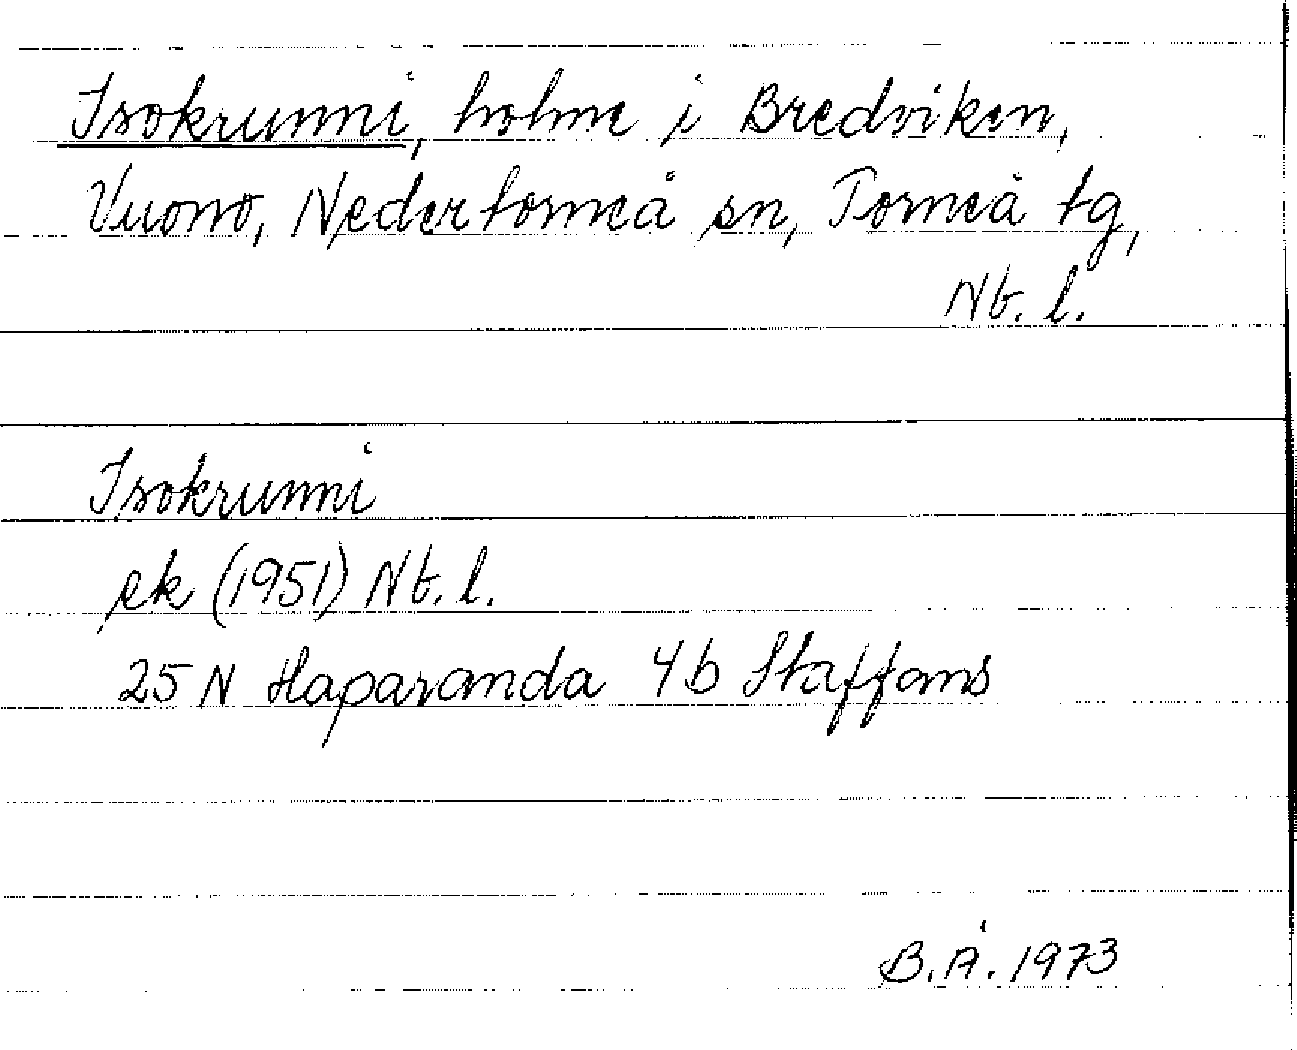 Isokrunni, holme i Bredviken,
Vuono, Nedertorneå sn, Torneå tg,
Nb. l.
Isokrunni
ek (1951) Nb. l.
25 N Haparanda 4b Staffans
B.Å. 1973